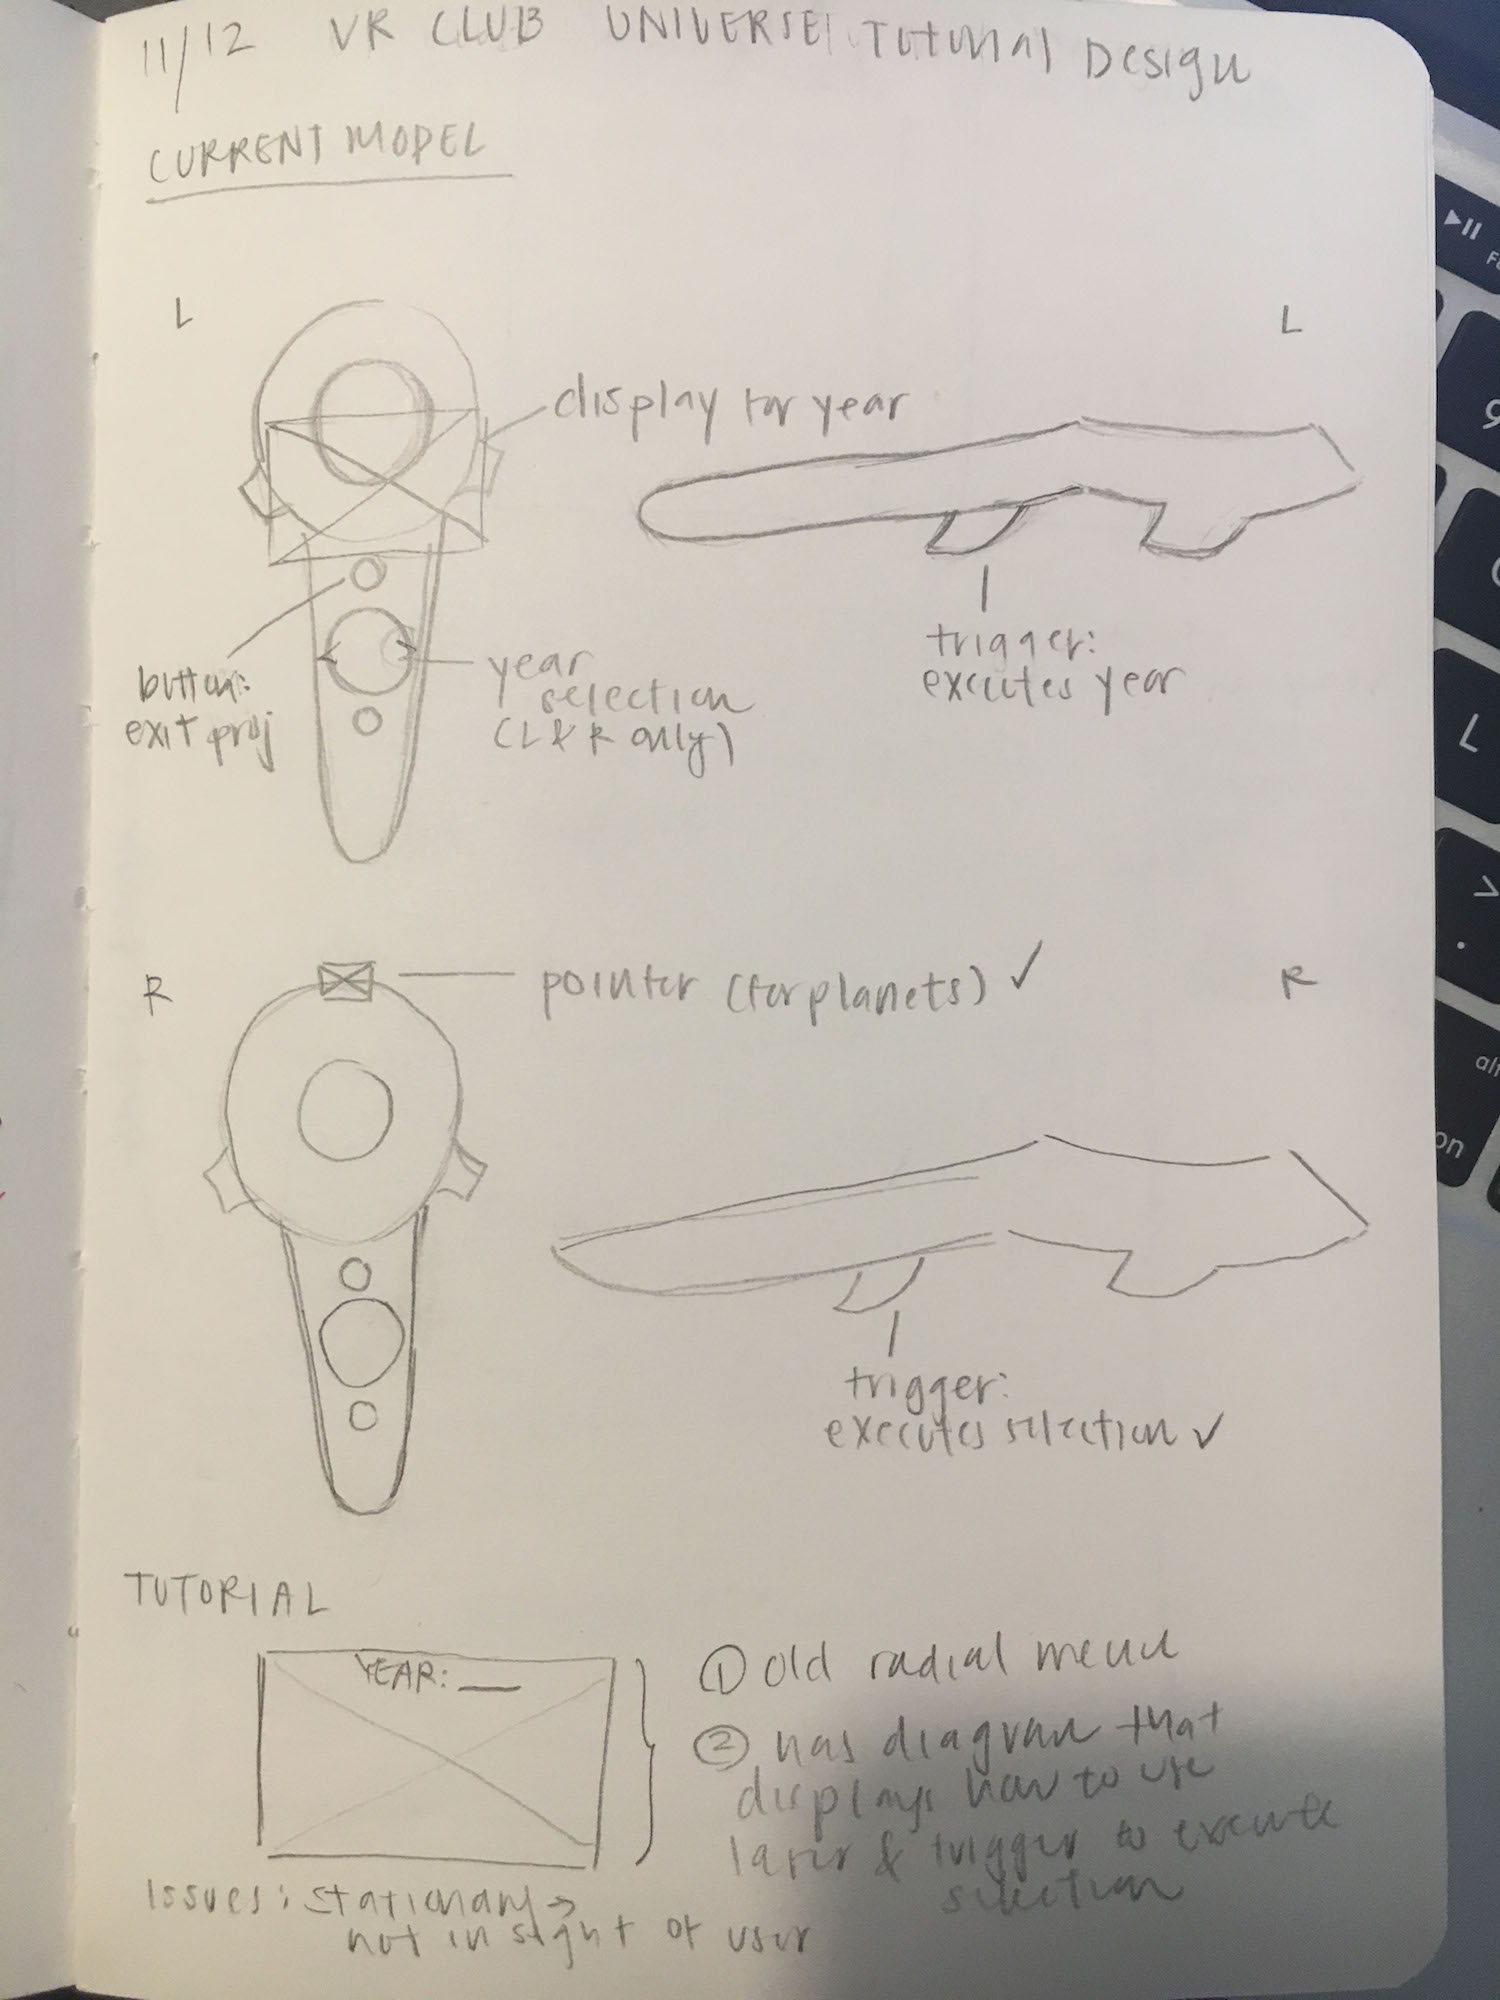 11/12 VR CLUB UNIVERSE Tutorial Design
CURRENT MODEL
L
L
display for year
button:
exit proj
year
selection
(L & R only)
trigger:
executes year
R
R
pointer (for planets) ✓
trigger:
executes selection ✓
TUTORIAL
YEAR: __
① old radial menu
② has diagram that
displays how to use
laser & trigger to execute
selection
Issues: stationary →
not in sight of user
L
>
.
alt